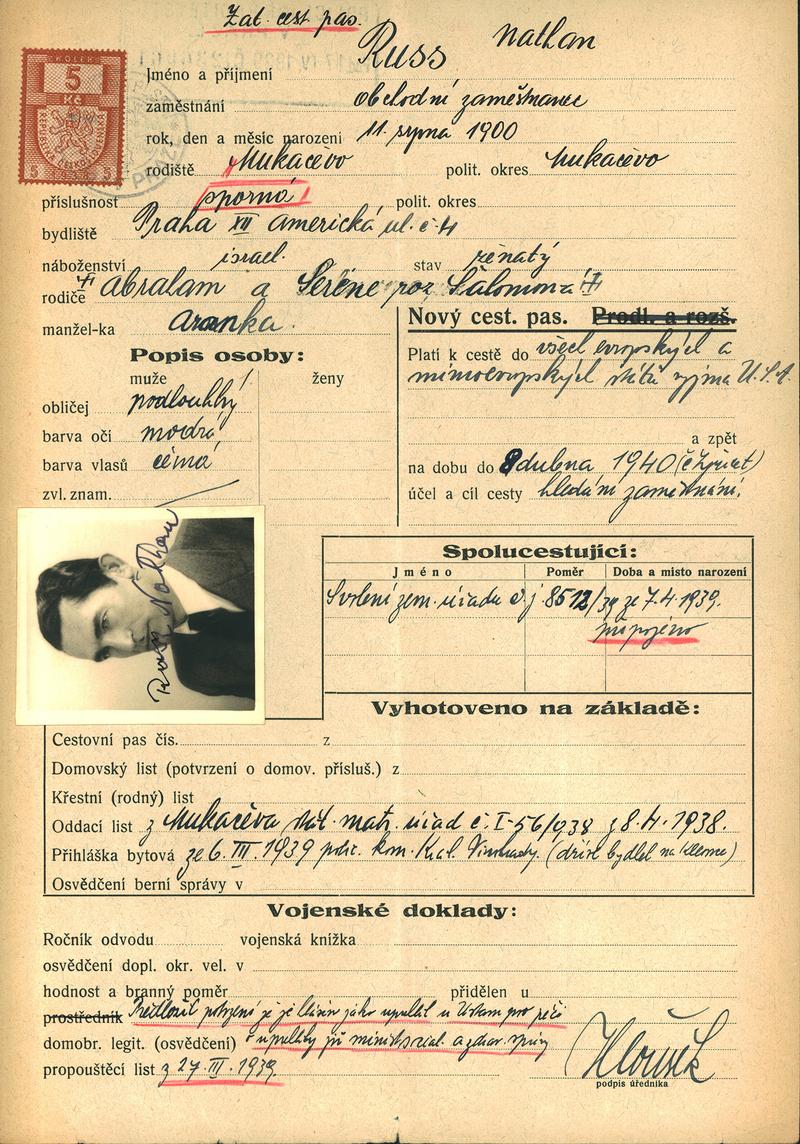 Zat. cest. pas.
KOLEK
5
Kč
Jméno a příjmení Russ Nathan
zaměstnání obchodní zaměstnanec
rok, den a měsíc narození 11. srpna 1900
rodiště Mukačevo polit. okres Mukačevo
příslušnost sporná polit. okres
bydliště Praha XII Americká ul. č. 4
náboženství israel. stav ženatý
rodiče Abraham a Seréne roz. Salomonů
manžel-ka Aranka.
Nový cest. pas. Prodl. a rozš.
Popis osoby:
muže ženy
obličej podlouhlý
barva očí modrá
barva vlasů černá
zvl. znam.
Platí k cestě do všech evropských a
mimoevropských států vyjma U.S.A.
a zpět
na dobu do 8 dubna 1940
účel a cíl cesty hledání zaměstnání.
Russ Nathan
Spolucestující:
Jméno Poměr Doba a místo narození
Svolení zem. úřadu č. j. 8512/39 ze 7.4.1939.
připojeno
Vyhotoveno na základě:
Cestovní pas čís. z
Domovský list (potvrzení o domov. přísluš.) z
Křestní (rodný) list
Oddací list z Mukačeva stát. matr. úřad č. I-56/938 z 8.4.1938.
Přihláška bytová ze 6. III. 1939 polic. kom. Král. Vinohrady. (dříve bydlel na
Osvědčení berní správy v
Vojenské doklady:
Ročník odvodu vojenská knížka
osvědčení dopl. okr. vel. v
hodnost a branný poměr přidělen u
prostředník Předložil potvrzení že je hlášen jako uprchlík u Ústavu pro péči
domobr. legit. (osvědčení) o uprchlíky při minist. sociál. a zdrav. správy
propouštěcí list z 27. III. 1939.
Hloušek
podpis úředníka